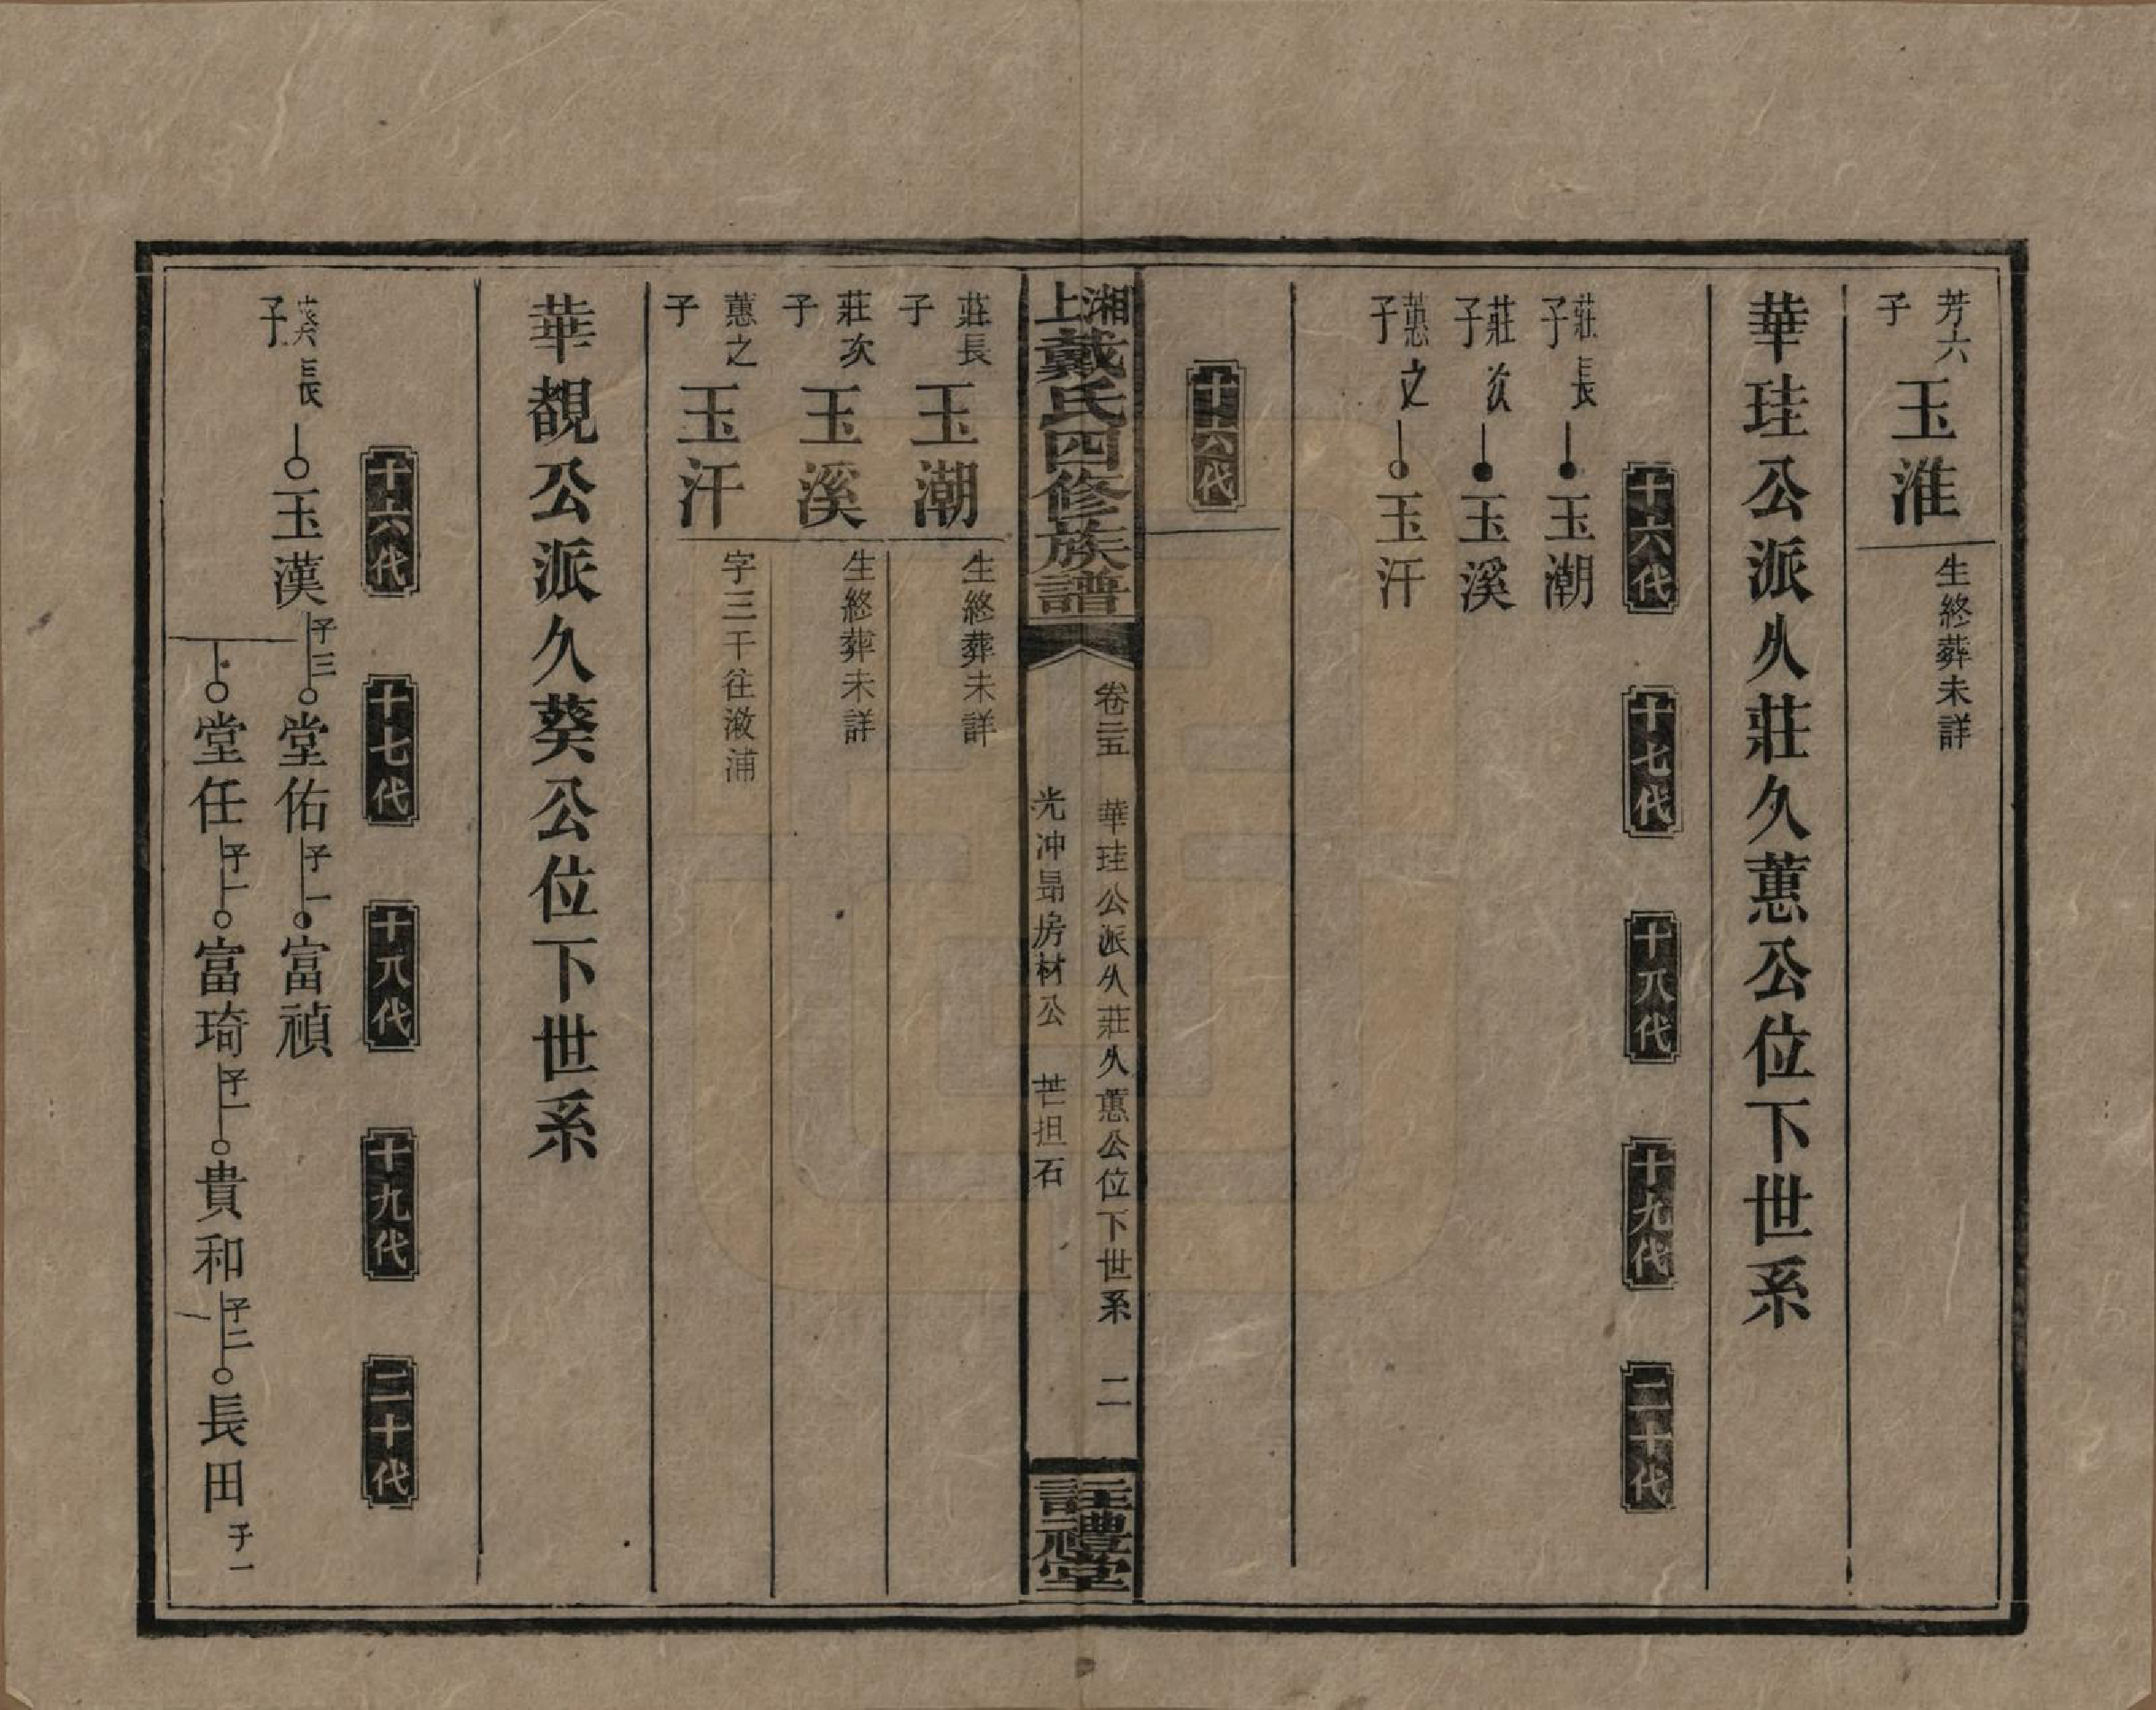 芳六子 玉淮 生終葬未詳
華珪公派久莊久蕙公位下世系
十六代 十七代 十八代 十九代 二十代
莊長子 玉潮
莊次子 玉溪
蕙之子 玉汗
十六代
湘上戴氏四修族譜 卷三五 華珪公派久莊久蕙公位下世系 二
光冲昻房材公 芒担石
註禮堂
莊長子 玉潮 生終葬未詳
莊次子 玉溪 生終葬未詳
蕙之子 玉汗 字三干往漵浦
華覩公派久葵公位下世系
十六代 十七代 十八代 十九代 二十代
葵長子 玉漢 子三 堂佑 子一 富禎
堂任 子一 富琦 子一 貴和 子二 長田 子一